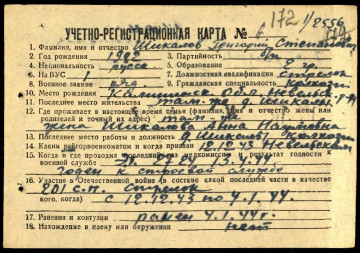 172/8556
УЧЕТНО-РЕГИСТРАЦИОННАЯ КАРТА №
1. Фамилия, имя и отчество Шикалов Григорий Степанович
2. Год рождения 1902 3. Партийность б/п
4. Национальность русск 5. Образование 2 гр.
6. На ВУС 1 7. Должностная квалификация Стрелок
8. Военное звание ряд 9. Гражданская специальность
10. Место рождения Калининск. обл. Невельск.
11. Последнее место жительства там-же д. Шикалы
12. Где проживает в настоящее время семья (фамилия, имя и отчество жены или
родителей и точный их адрес) там-же
жена Шикалова Анна
13. Последнее место работы и должность Шикалы Колхозн
14. Каким райгорвоенкоматом и когда призван 12.12.43 Невельским
15. Когда и где проходил последний раз медкомиссию и результат годности к
военной службе 4.44
годен к строевой службе
16. Участие в Отечественной войне (в составе какой последней части в качестве
кого, когда) 201 с.п. Стрелок
с 12.12.43 по 4.1.44.
17. Ранения и контузии ранен 4.1.44г.
18. Нахождение в плену или окружении нет